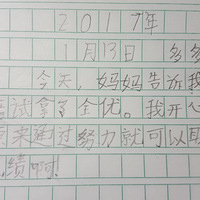 2017年
1月13日 多多
今天，妈妈告诉我
考试拿了全优。我开心
原来通过努力就可以取
绩啊！